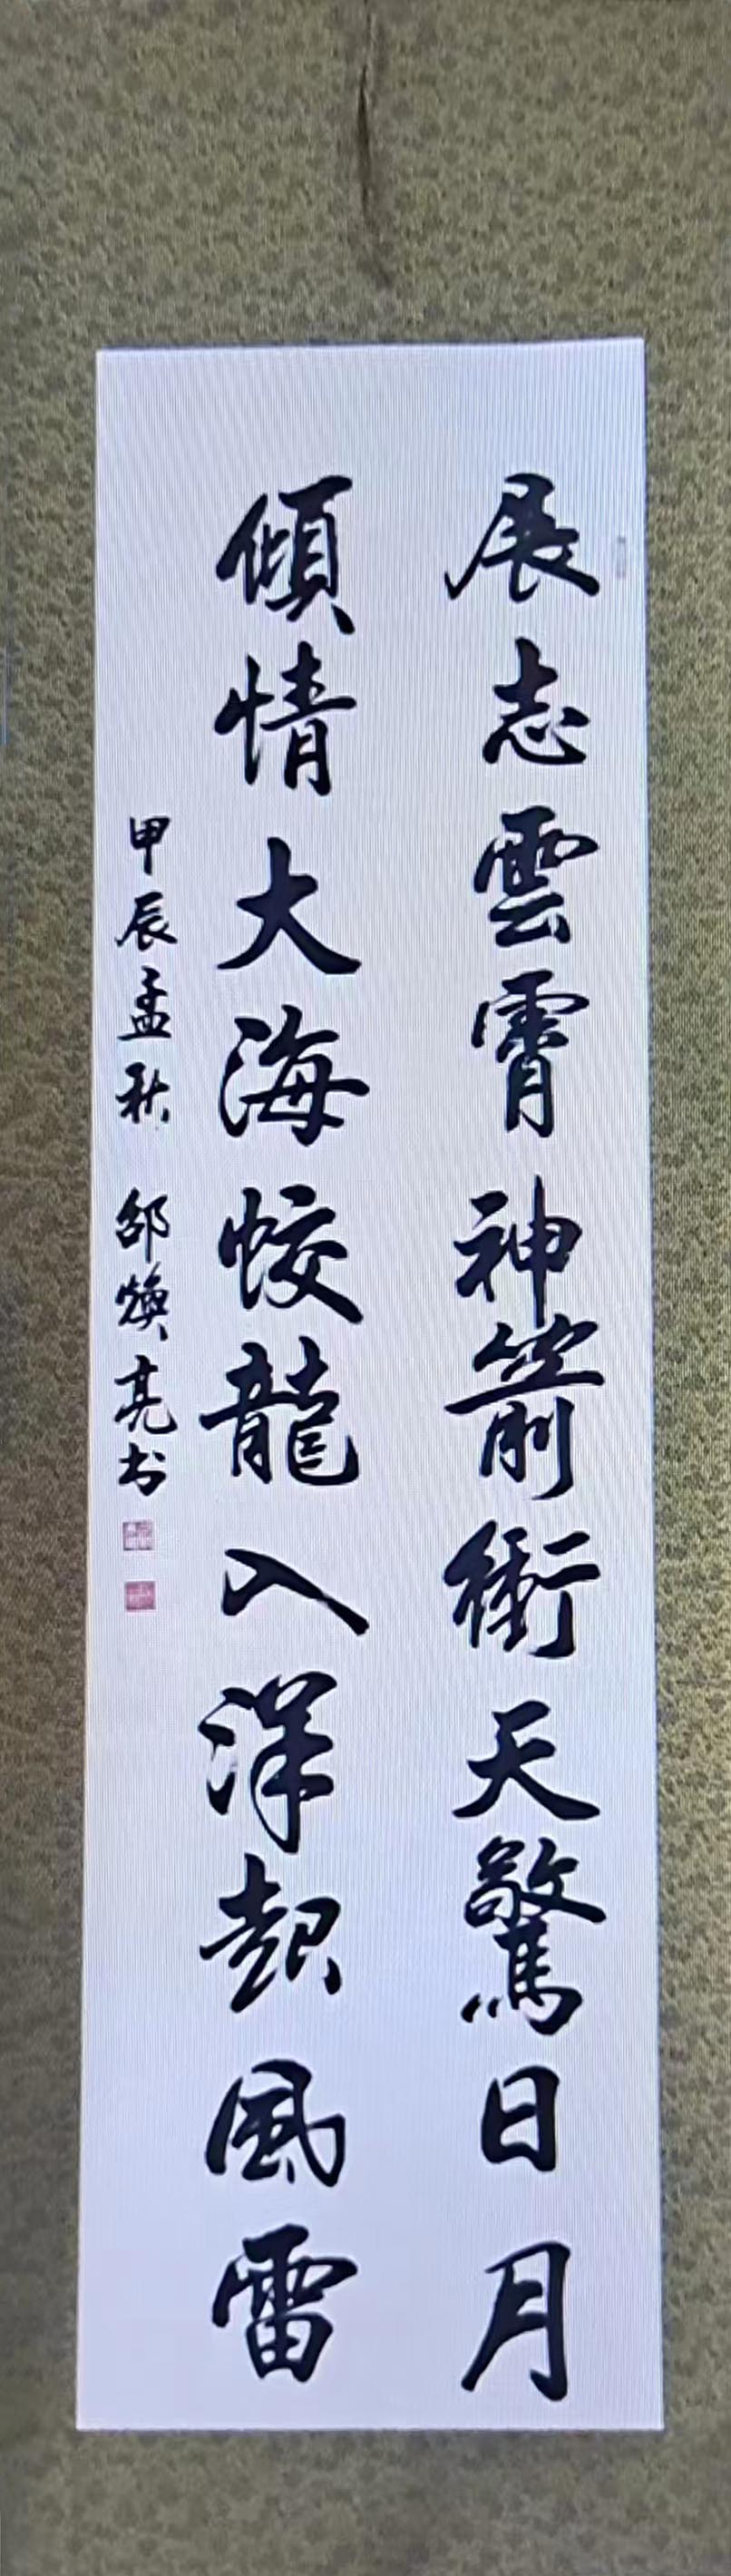 展志雲霄神箭衝天驚日月
傾情大海蛟龍入洋起風雷
甲辰孟秋 邵煥亮书